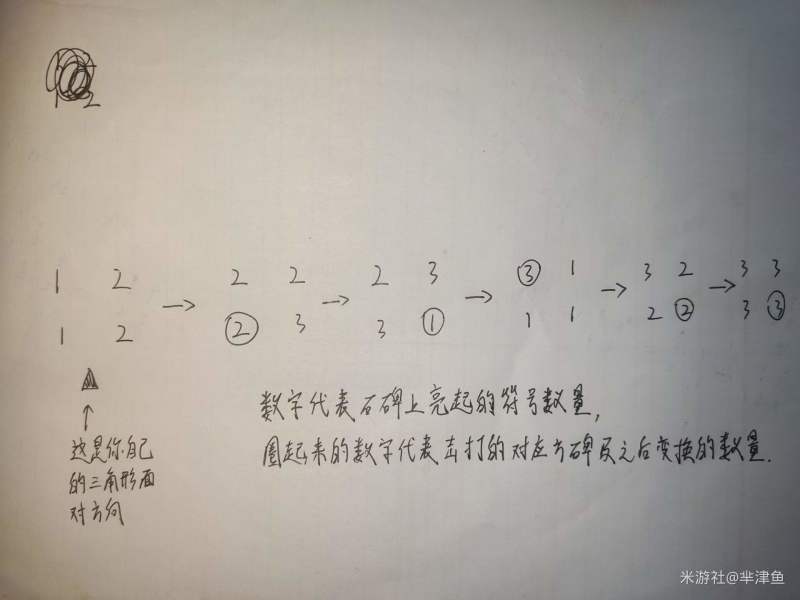 2
1 2 → 2 2 → 2 3 → ③ 1 → 3 2 → 3 3
1 2 ② 3 3 ① 1 1 2 ② 3 ③
↑
这是你自己
的三角形面
对方向
数字代表石碑上亮起的符号数量,
圈起来的数字代表击打的对应方碑及之后变换的数量.
米游社@芈津鱼